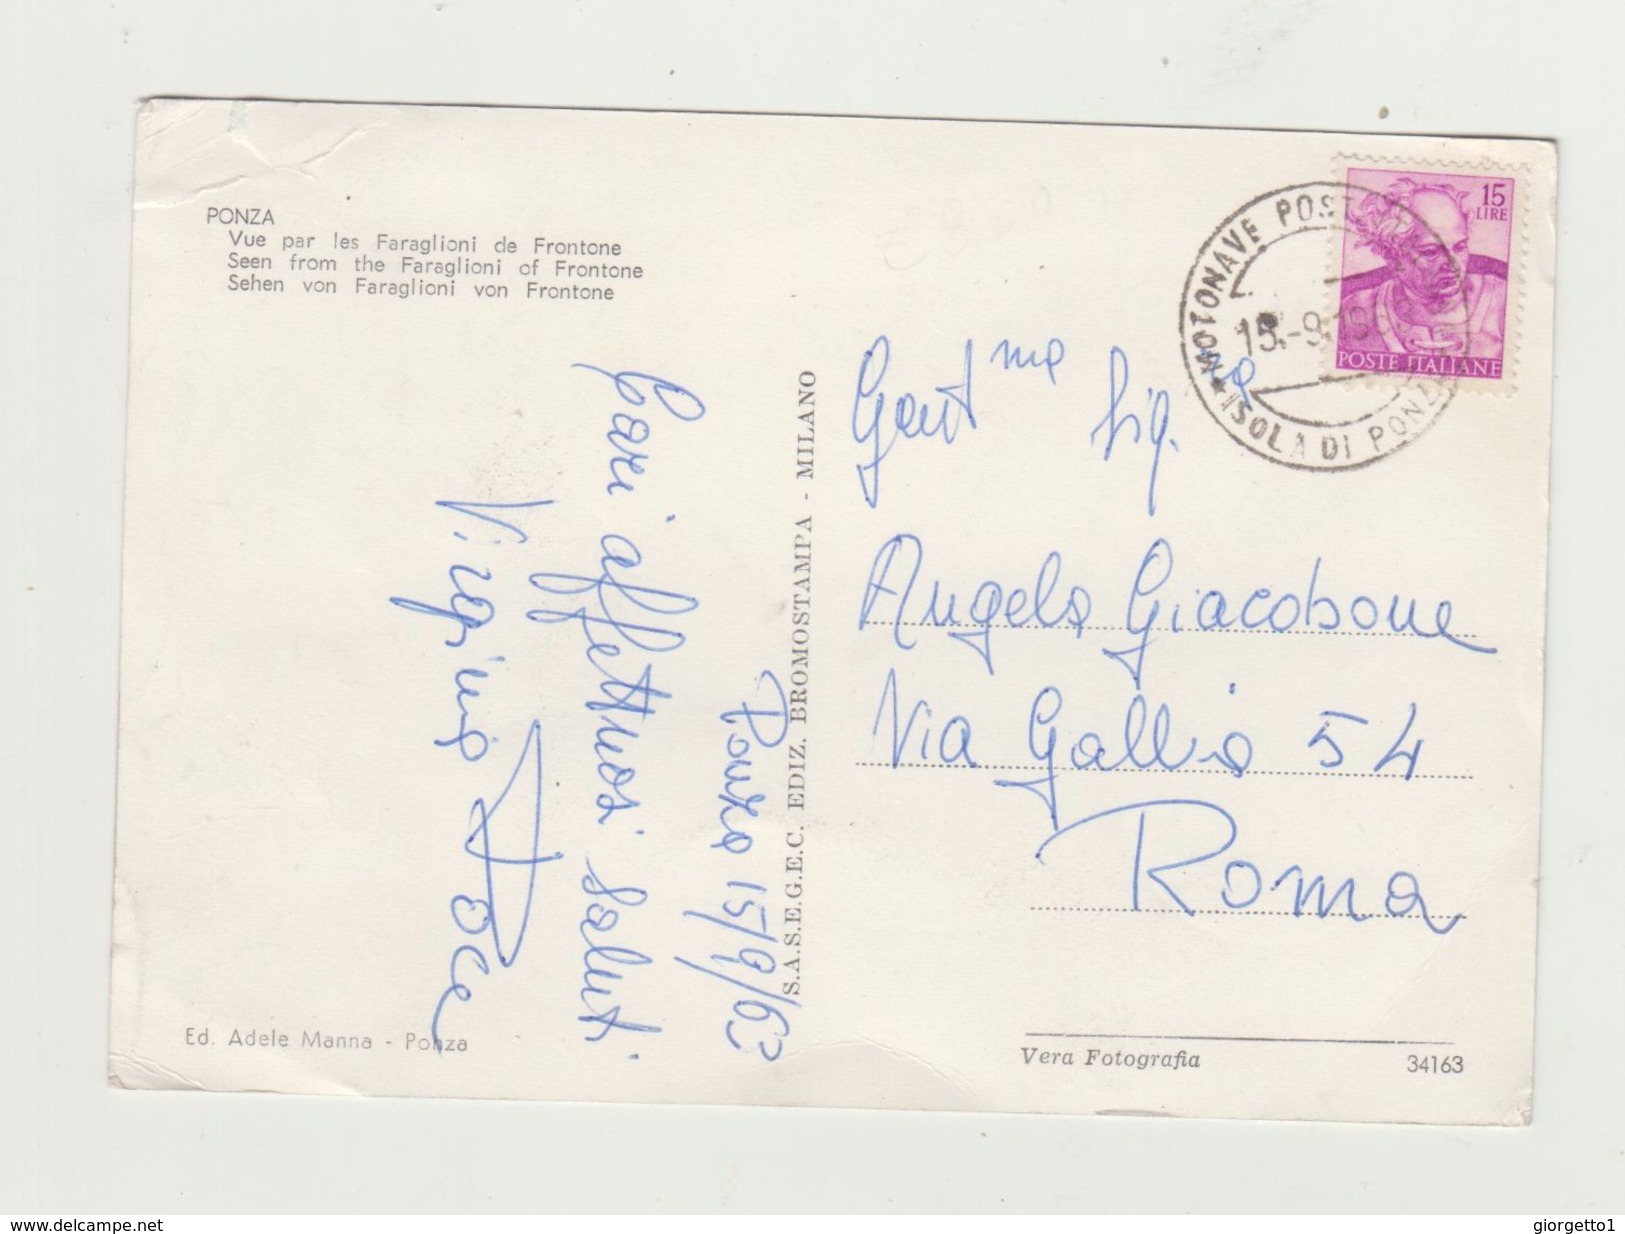 PONZA
Vue par les Faraglioni de Frontone
Seen from the Faraglioni of Frontone
Sehen von Faraglioni von Frontone
Cari affettuosi saluti
Ponza 15/9/63
Ed. Adele Manna - Ponza
S.A.S.E.G.E.C. EDIZ. BROMOSTAMPA - MILANO
15 LIRE
POSTE ITALIANE
MOTONAVE
15.-9.
ISOLA DI PONZA
Gent ma Sig. ra
Angelo Giacobone
Via Gallio 54
Roma
Vera Fotografia
34163
www.delcampe.net
giorgetto1